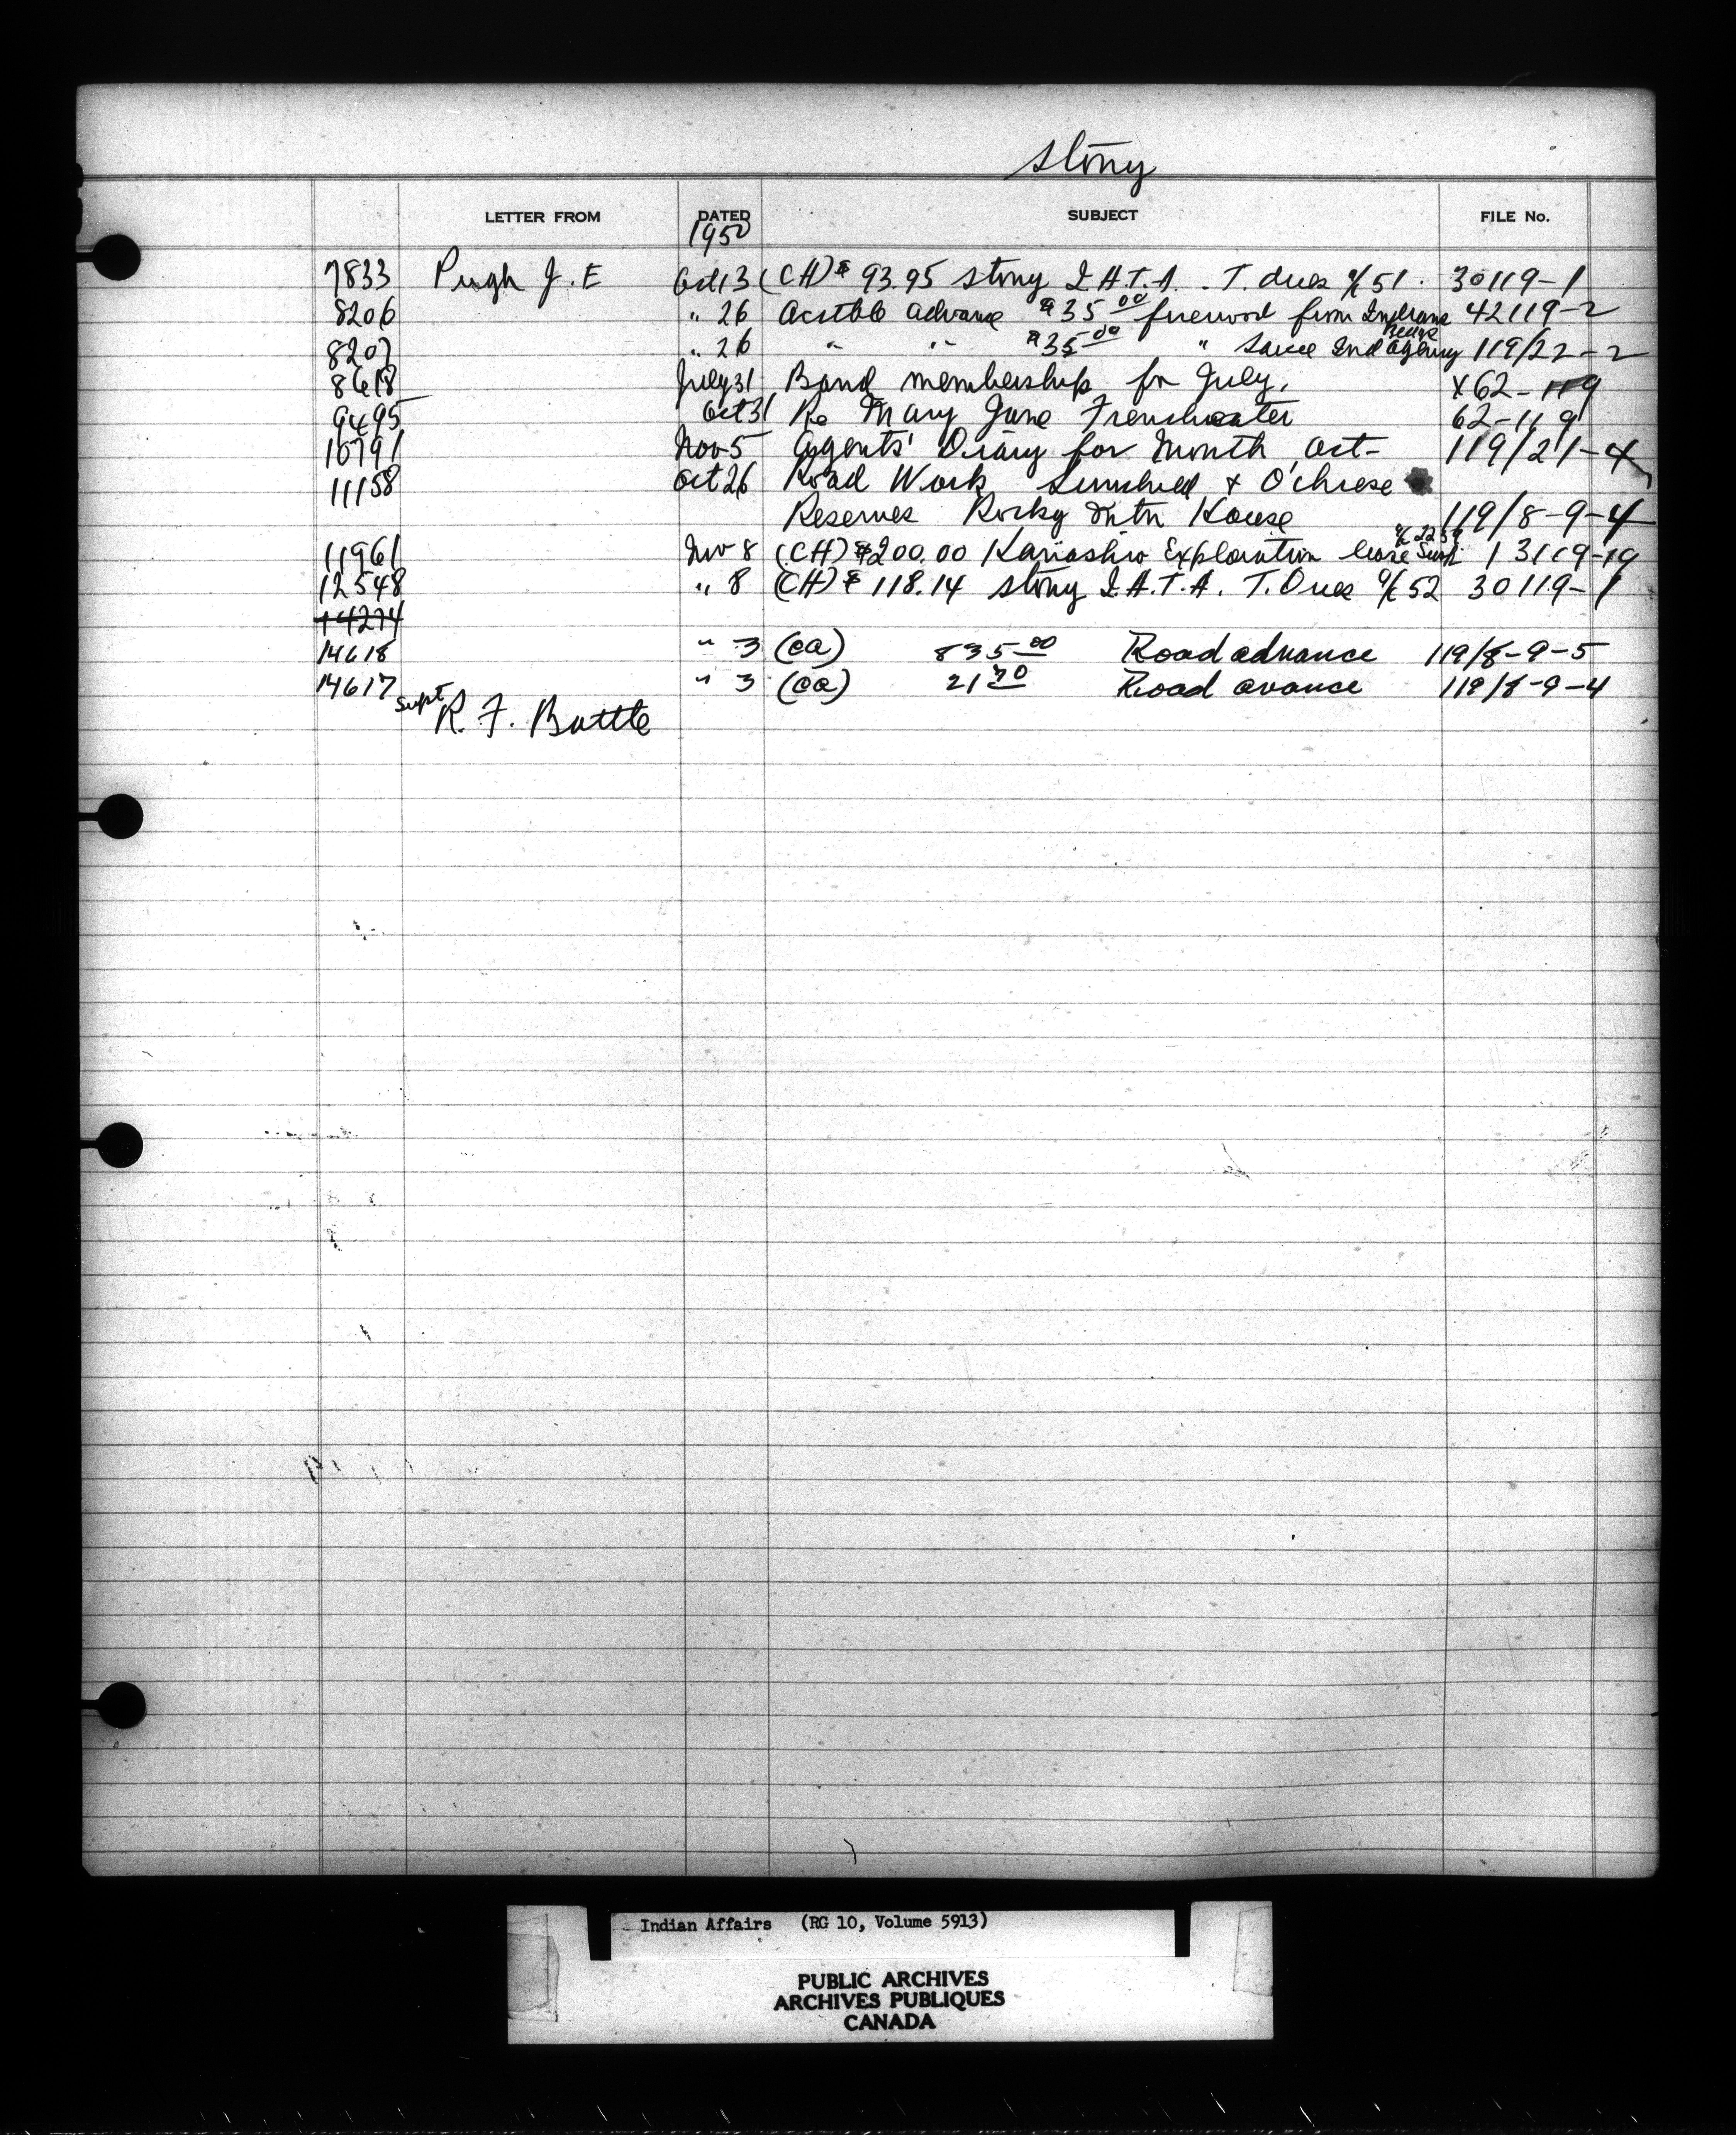 Stony
LETTER FROM DATED SUBJECT FILE No.
1950
7833 Pugh J. E Oct 13 (CH) $ 93.95 Stony I.H.T.A. T. dues a/c 51. 30119-1
8206 " 26 Acctble advance $35.00 firewood from Indians 42119-2
8207 " 26 " " $35.00 " same Ind Agency 119/22-2
8618 July 31 Band membership for July, X62-119
9495 Oct 31 Re Mary Jane 62-119
10791 Nov 5 Agents' Diary for Month Oct- 119/21-4
11158 Oct 26 Road Work Sunchild & O'chiese
Reserves Rocky Mtn House 119/8-9-4
11961 Nov 8 (CH) $200.00 Exploration lease 13119-19
12548 " 8 (CH) $ 118.14 Stony I.H.T.A. T. Dues a/c 52 30119-1
14274
14618 " 3 (ca) 835.00 Road advance 119/8-9-5
14617 " 3 (ca) 21 70 Road avance 119/8-9-4
Supt R. F. Battle
Indian Affairs (RG 10, Volume 5913)
PUBLIC ARCHIVES
ARCHIVES PUBLIQUES
CANADA